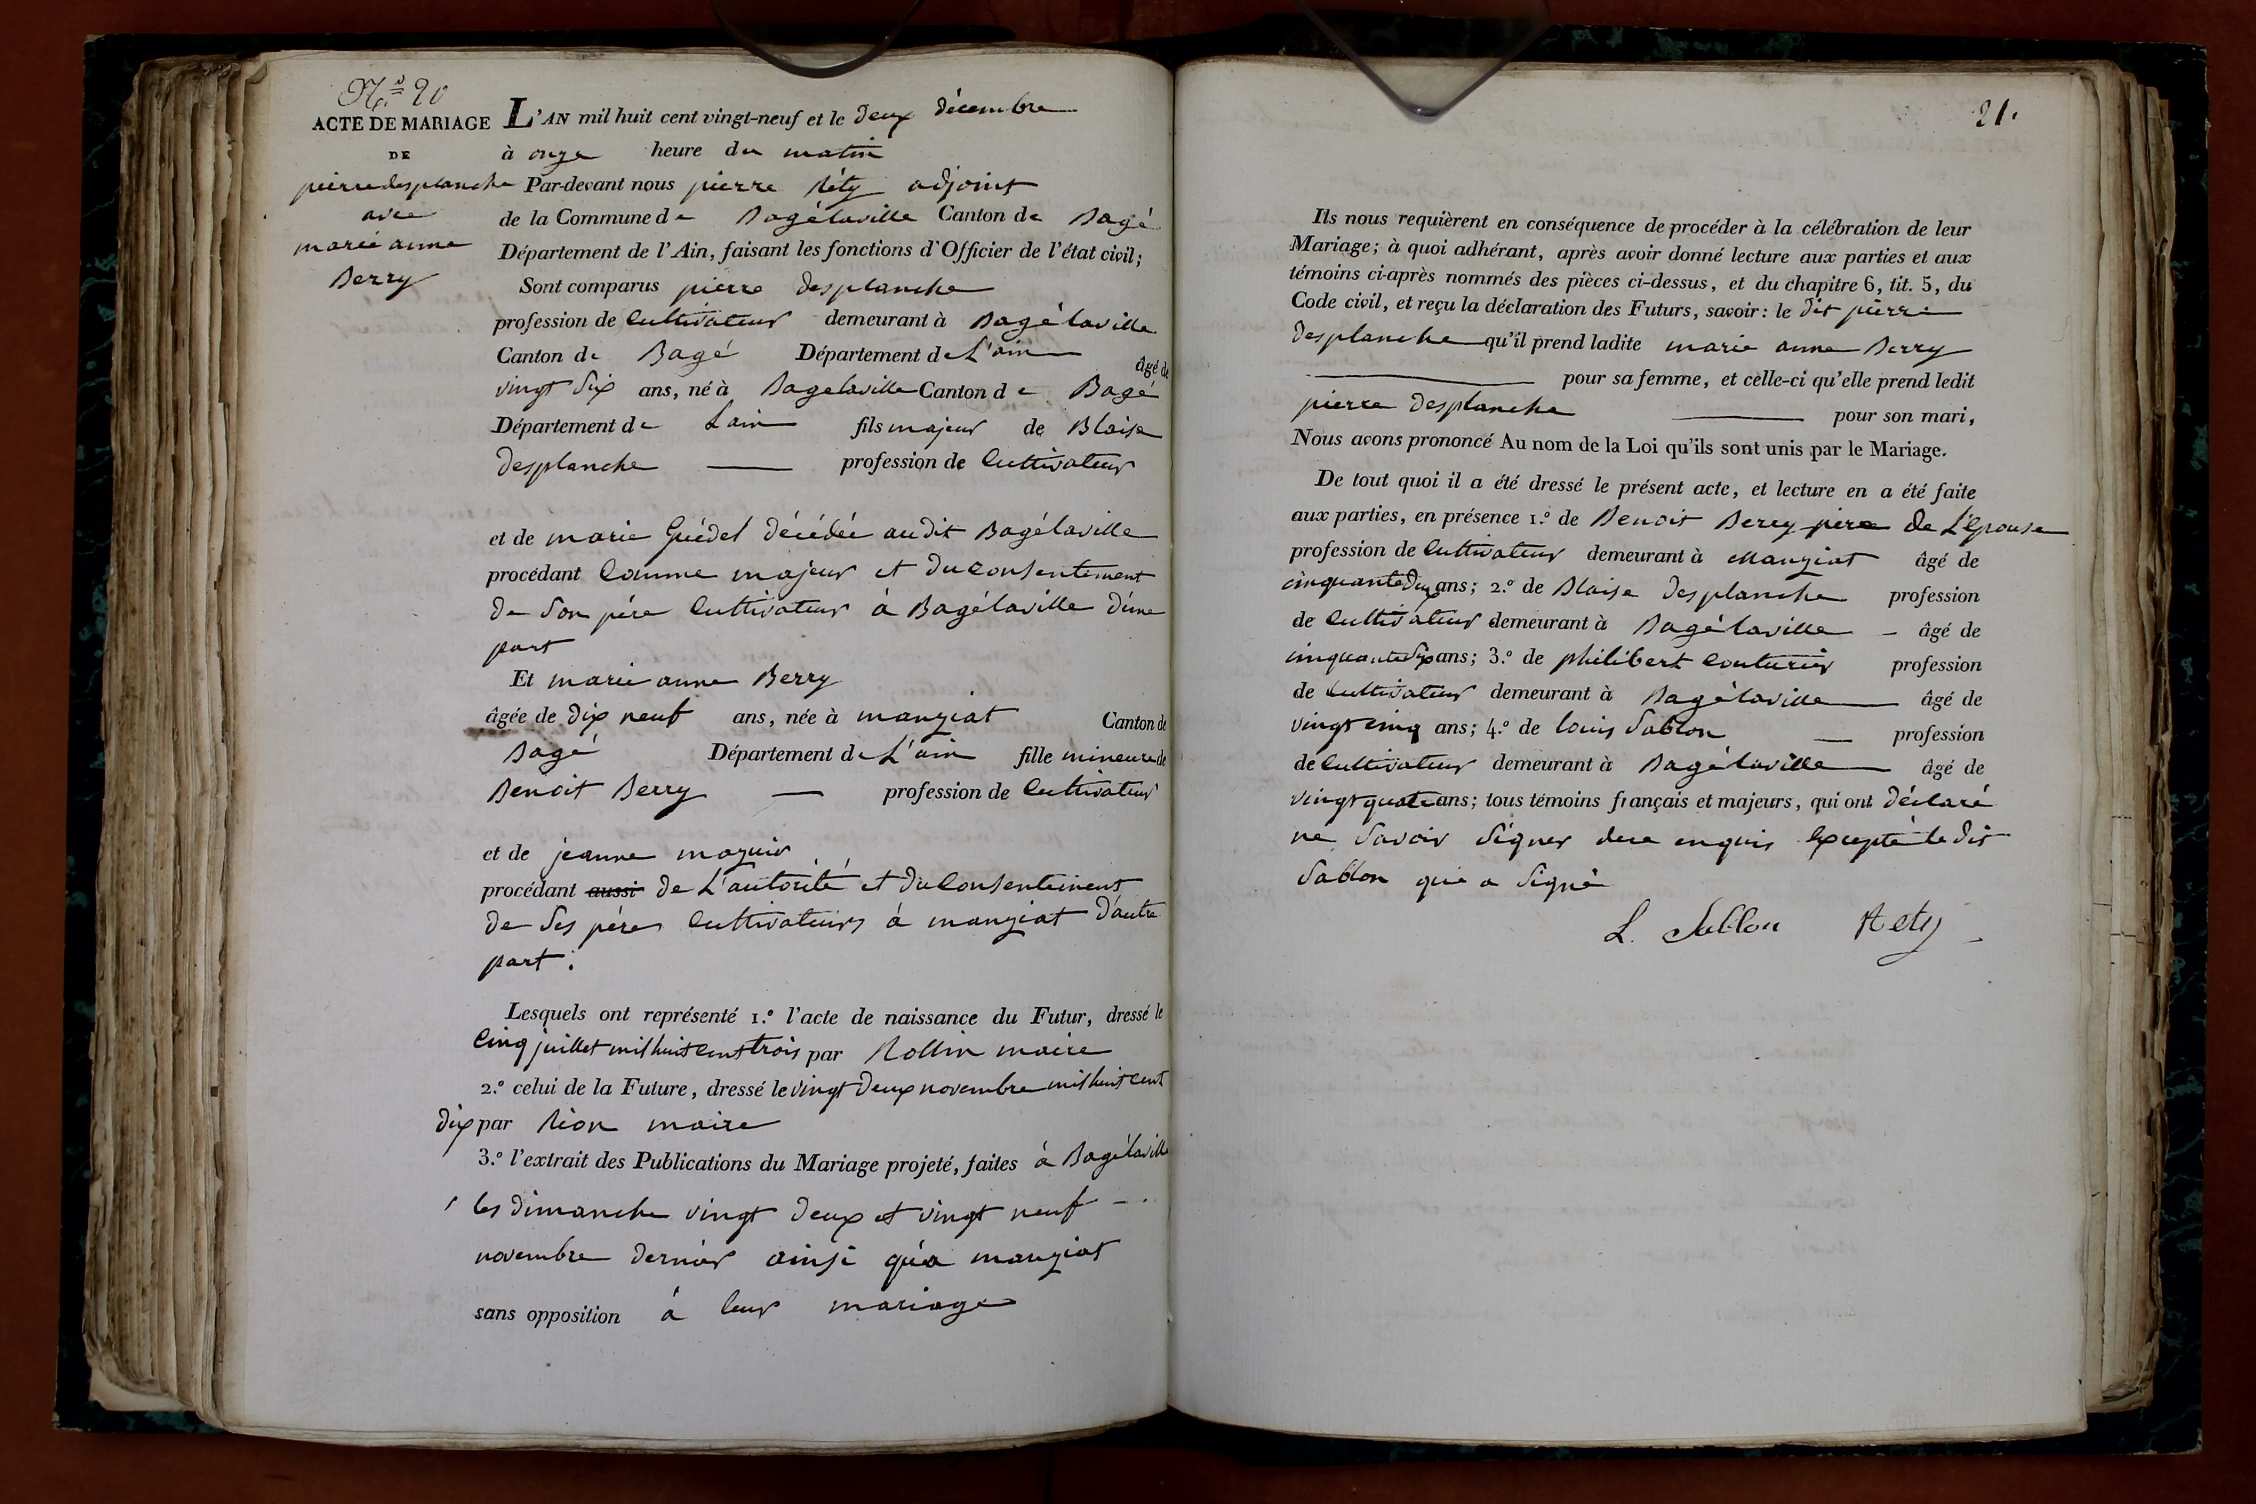 N.º 20
ACTE DE MARIAGE
DE
pierre desplanche
avec
marie anne
Berry
L'AN mil huit cent vingt-neuf et le deux décembre
à onze heure du matin
Par-devant nous pierre Réty adjoint
de la Commune de Bagélaville Canton de Bagé
Département de l'Ain, faisant les fonctions d'Officier de l'état civil;
Sont comparus pierre desplanche
profession de Cultivateur demeurant à Bagélaville
Canton de Bagé Département de L'ain âgé de
vingt six ans, né à Bagelaville Canton de Bagé
Département de Lain fils majeur de Blaise
desplanche profession de Cultivateur
et de marie Guédel décédée audit Bagélaville
procédant Comme majeur et du consentement
de son père Cultivateur à Bagélaville d'une
part
Et marie anne Berry
âgée de dix neuf ans, née à manziat Canton de
Bagé Département de L'ain fille mineure de
Benoit Berry profession de Cultivateur
et de jeanne mazuir
procédant aussi de L'autorité et du Consentement
de ses pères Cultivateurs à manziat d'autre
part.
Lesquels ont représenté 1.º l'acte de naissance du Futur, dressé le
Cinq juillet mil huit cent trois par Rollin maire
2.º celui de la Future, dressé le vingt deux novembre mil huit cent
dix par Rion maire
3.º l'extrait des Publications du Mariage projeté, faites à Bagélaville
les dimanche vingt deux et vingt neuf
novembre dernier ainsi qu'a manziat
sans opposition à leur mariage
21.
Ils nous requièrent en conséquence de procéder à la célébration de leur
Mariage; à quoi adhérant, après avoir donné lecture aux parties et aux
témoins ci-après nommés des pièces ci-dessus, et du chapitre 6, tit. 5, du
Code civil, et reçu la déclaration des Futurs, savoir: le dit pierre
desplanche qu'il prend ladite marie anne Berry
pour sa femme, et celle-ci qu'elle prend ledit
pierre desplanche pour son mari,
Nous avons prononcé Au nom de la Loi qu'ils sont unis par le Mariage.
De tout quoi il a été dressé le présent acte, et lecture en a été faite
aux parties, en présence 1.º de Benoit Berry père de L'Epouse
profession de Cultivateur demeurant à Manziat âgé de
cinquante deux ans; 2.º de Blaise desplanche profession
de Cultivateur demeurant à Bagélaville âgé de
cinquante six ans; 3.º de philibert Couturier profession
de Cultivateur demeurant à Bagélaville âgé de
vingt cinq ans; 4.º de louis Sablon profession
de Cultivateur demeurant à Bagélaville âgé de
vingt quatre ans; tous témoins français et majeurs, qui ont déclaré
ne savoir signer de ce enquis Excepté le dit
Sablon qui a signé
L. Sablon Rety